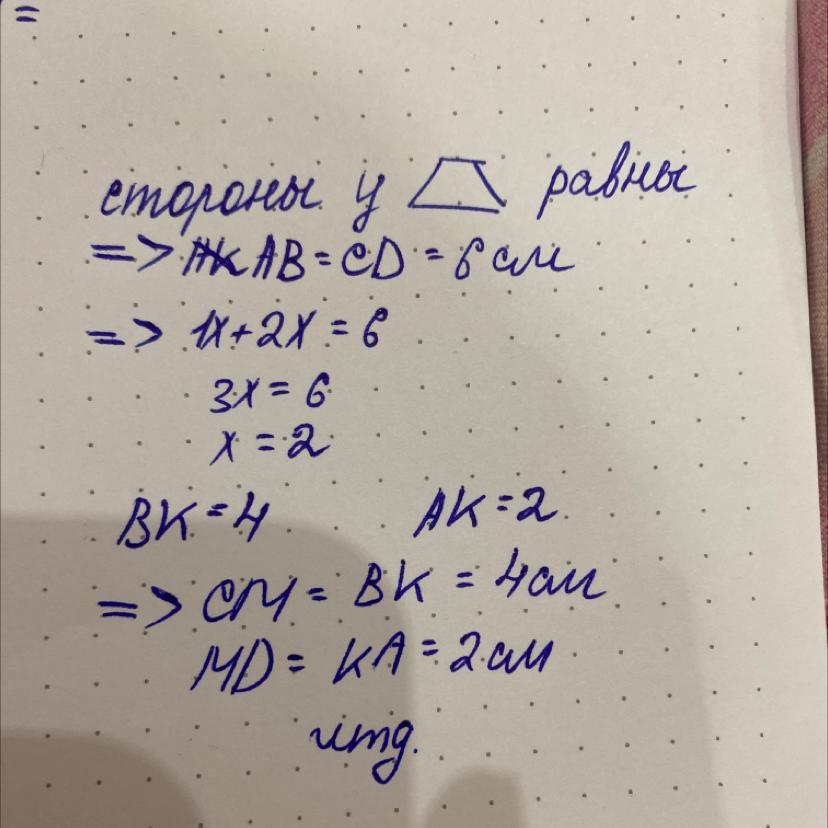 =
стороны у равны
=> AB = CD = 6 см
=> 1x + 2x = 6
3x = 6
x = 2
BK = 4 AK = 2
=> CM = BK = 4 см
MD = KA = 2 см
итд.